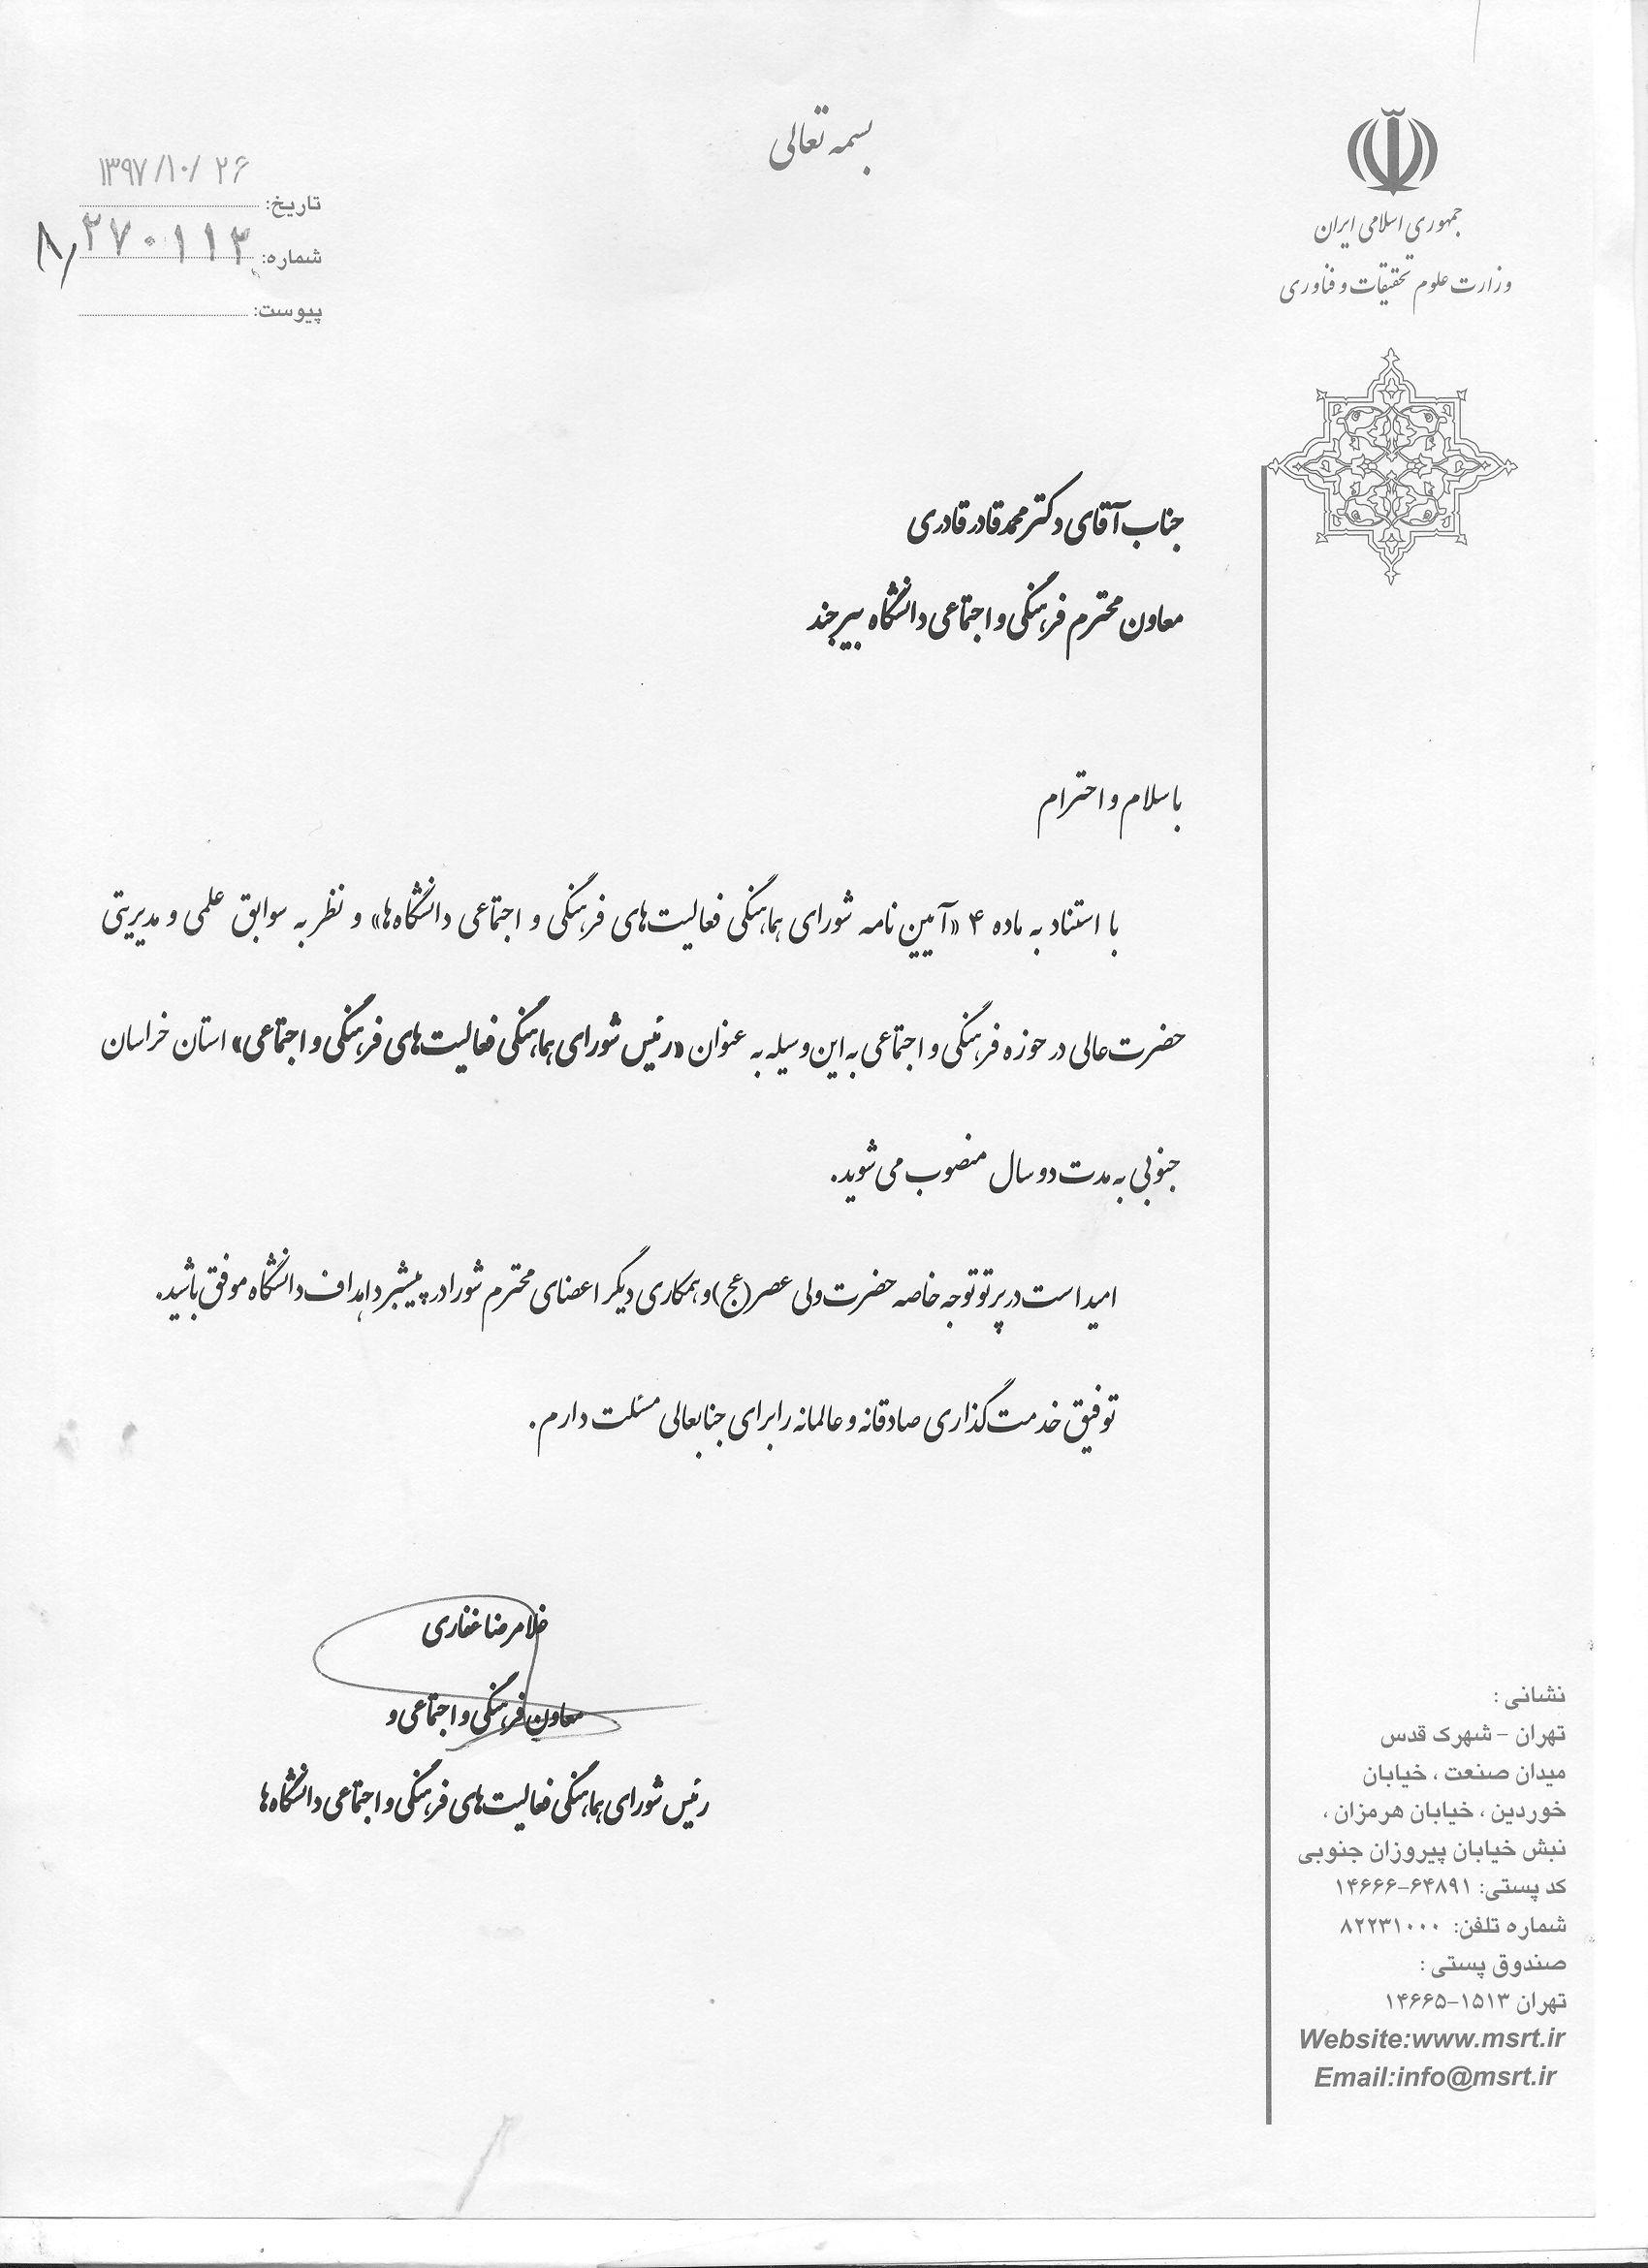 بسمه تعالی
جمهوری اسلامی ایران
وزارت علوم تحقیقات و فناوری
تاریخ: ۱۳۹۷/۱۰/۲۶
شماره: ۸/۲۷۰۱۱۳
پیوست:
جناب آقای دکتر محمد قادر قادری
معاون محترم فرهنگی و اجتماعی دانشگاه بیرجند
با سلام و احترام
با استناد به ماده ۴ «آیین نامه شورای هماهنگی فعالیت‌های فرهنگی و اجتماعی دانشگاه‌ها» و نظر به سوابق علمی و مدیریتی
حضرت عالی در حوزه فرهنگی و اجتماعی به این وسیله به عنوان «رئیس شورای هماهنگی فعالیت‌های فرهنگی و اجتماعی» استان خراسان
جنوبی به مدت دو سال منصوب می شوید.
امید است در پرتو توجه خاصه حضرت ولی عصر (عج) و همکاری دیگر اعضای محترم شورا در پیشبرد اهداف دانشگاه موفق باشید.
توفیق خدمت گذاری صادقانه و عالمانه را برای جنابعالی مسئلت دارم.
غلامرضا غفاری
معاون فرهنگی و اجتماعی و
رئیس شورای هماهنگی فعالیت‌های فرهنگی و اجتماعی دانشگاه‌ها
نشانی :
تهران - شهرک قدس
میدان صنعت ، خیابان
خوردین ، خیابان هرمزان ،
نبش خیابان پیروزان جنوبی
کد پستی: ۱۴۶۶۶-۶۴۸۹۱
شماره تلفن: ۸۲۲۳۱۰۰۰
صندوق پستی :
تهران ۱۵۱۳-۱۴۶۶۵
Website:www.msrt.ir
Email:info@msrt.ir